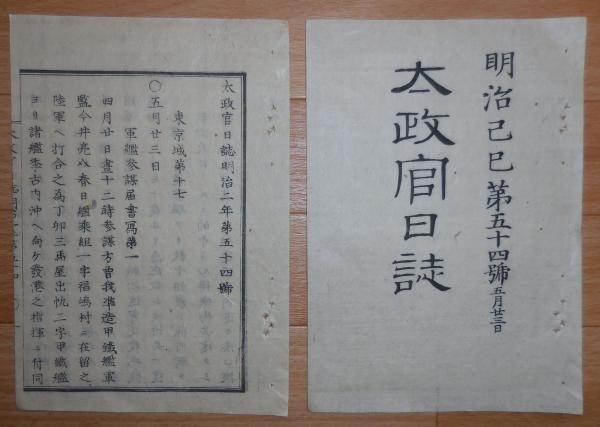 明治己巳第五十四號五月廿三日
太政官日誌
太政官日誌明治二年第五十四號
東京城第十七
〇五月廿三日
軍艦參謀届書寫第一
四月廿日晝十二時參謀方曽我準造甲鐵艦軍
監今井春日艦乘組一字福嶋村ニ在留之
陸軍ヘ打合之為丁卯三馬屋出帆二字甲鐵艦
ヨリ諸艦古内沖ヘ向ケ發港之指揮ニ付同